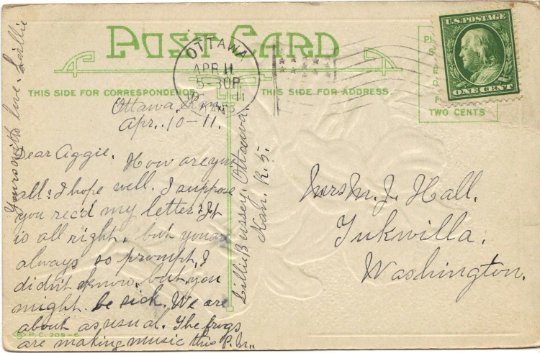 POST CARD
OTTAWA
APR 11
5-30P
KANS
U.S. POSTAGE
ONE CENT
TWO CENTS
THIS SIDE FOR CORRESPONDENCE
THIS SIDE FOR ADDRESS
Ottawa, Kan.
Apr. 10-11.
Dear Aggie. How are you
all? I hope well. I suppose
you rec'd my letter? It
is all right, but you are
always so prompt, I
didn't know but you
might be sick. We are
about as usual. The frogs
are making music this P.M.
Yours with love. Lillie
Ottawa,
Kan. R. 5.
Mrs M. J. Hall.
Tukwilla,
Washington.